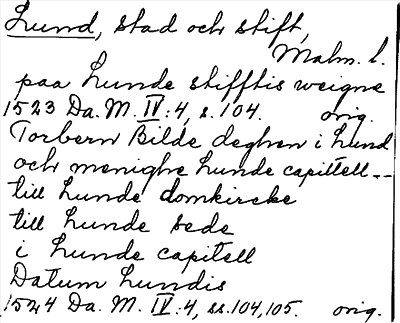 Lund, stad och stift,
Malm. l.
paa Lunde stifftis weigne
1523 Da. M. IV:4, s. 104. orig.
Torbern Bilde deghen i Lund
och menighe Lunde capittell --
till Lunde domkircke
till Lunde sede
i Lunde capitell
Datum Lundis
1524 Da. M. IV:4, ss. 104, 105. orig.